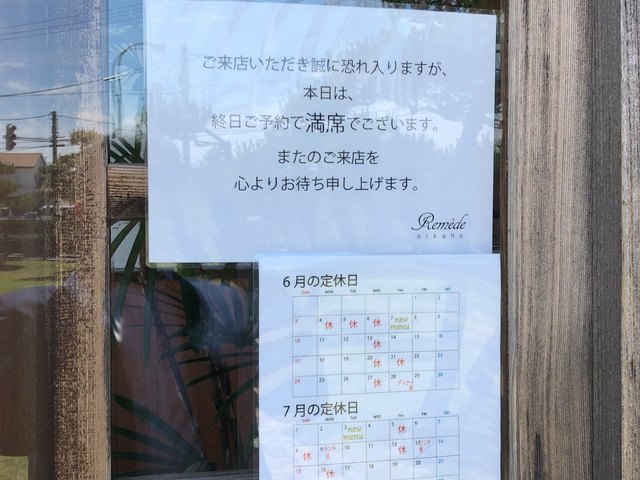 ご来店いただき誠に恐れ入りますが、
本日は、
終日ご予約で満席でございます。
またのご来店を
心よりお待ち申し上げます。
Remède
nikaho
6月の定休日
SUN MON TUE WED THU FRI SAT
1 2
3 4 休 5 休 6 休 7 new menu 8 9
10 11 12 13 休 14 15 16
17 18 19 20 休 21 休 22 23
24 25 26 27 休 28 ディナー 29 30
7月の定休日
SUN MON TUE WED THU FRI SAT
1 2 3 new menu 4 5 休 6 7
8 休 9 ランチ休 10 11 12 休 13 ランチ休 14
15 16 休 17 18 19 20 21